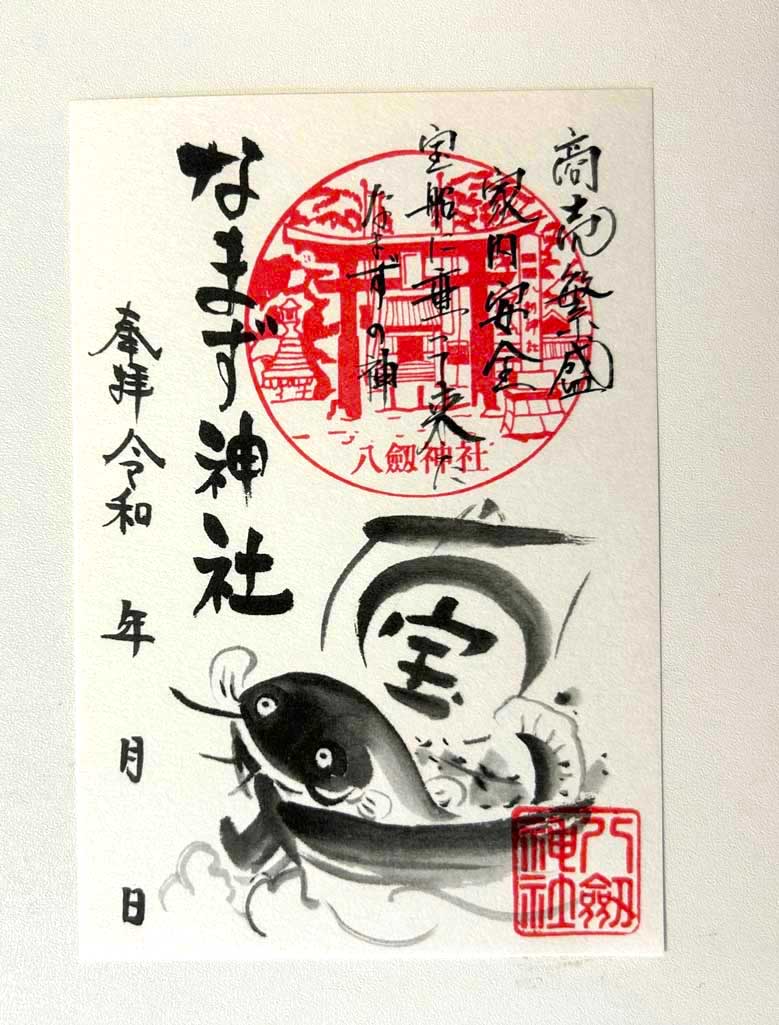 商売繁盛
家内安全
宝船に乗って来た
なまずの神
八劔神社
なまず神社
奉拝 令和 年 月 日
宝
八劔神社